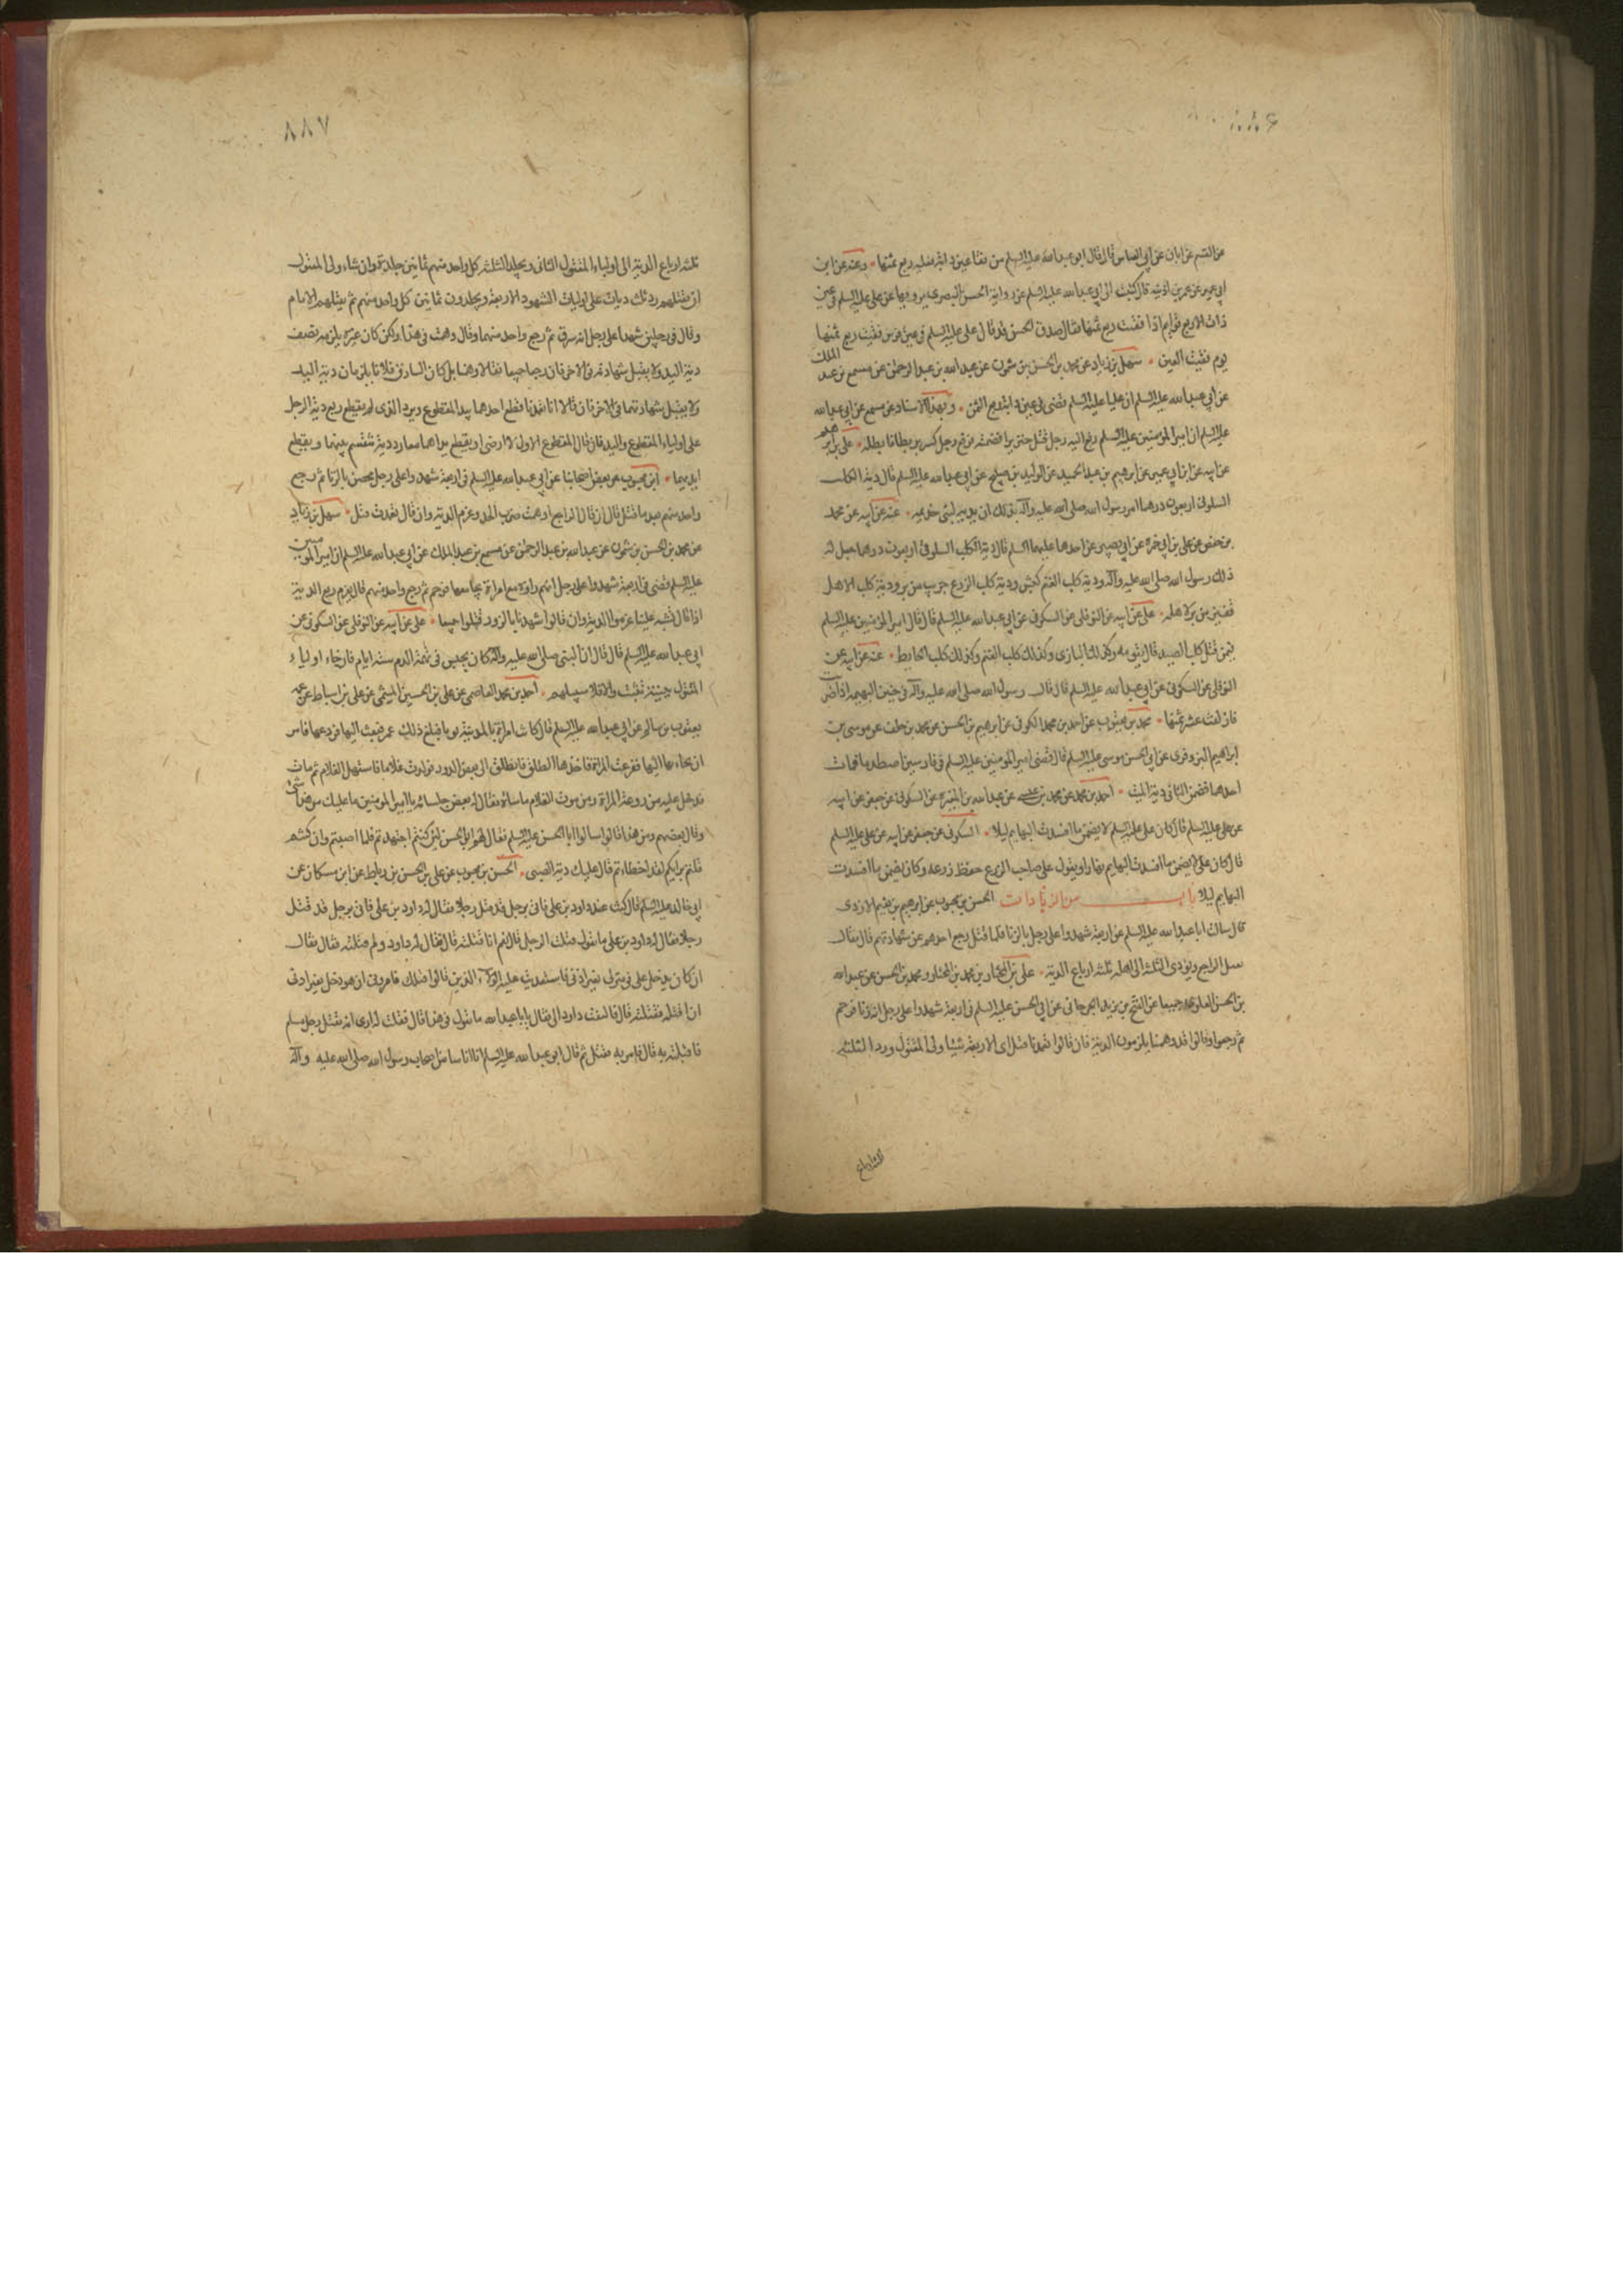 عن القسم عن ابان عن ابي العباس قال قال ابو عبد الله عليه السلم من فقا عين دابة فعليه ربع ثمنها وعنه عن ابن
ابي عمير عن عمر بن اذينه قال كتبت الى ابي عبد الله عليه السلم عن رواية الحسن البصري يرويها عن علي عليه السلم في عين
ذات الاربع قوايم اذا فقئت ربع ثمنها فقال صدق الحسن قد قال علي عليه السلم في عين فرس فقئت ربع ثمنها
يوم فقيت العين سهل بن زياد عن محمد بن الحسن بن شمون عن عبد الله بن عبد الرحمن عن مسمع بن عبد الملك
عن ابي عبد الله عليه السلم ان عليا عليه السلم قضى في عين دابة ربع الثمن وبهذا الاسناد عن مسمع عن ابي عبد الله
عليه السلم ان امير المؤمنين عليه السلم رفع اليه رجل قتل خنزيرا فضمنه ورجل كسر بربطا فابطله علي بن ابرهيم
عن ابيه عن ابن ابي عمير عن ابرهيم بن عبد الحميد عن الوليد بن صبيح عن ابي عبد الله عليه السلم قال دية الكلب
السلوقي اربعون درهما امر رسول الله صلى الله عليه وآله بذلك ان يديه لبني خزيمه عنه عن ابيه عن محمد
بن حفص عن علي بن ابي حمزه عن ابي بصير عن احدهما عليهما السلم قال دية الكلب السلوقي اربعون درهما جعل له
ذلك رسول الله صلى الله عليه وآله ودية كلب الغنم كبش ودية كلب الزرع جريب من بر ودية كلب الاهل
قفيز من بر لاهله علي عن ابيه عن النوفلي عن السكوني عن ابي عبد الله عليه السلم قال قال امير المؤمنين عليه السلم
فيمن قتل كلب الصيد قال يقومه وكذلك البازي وكذلك كلب الغنم وكذلك كلب الحايط عنه عن ابيه عن
النوفلي عن السكوني عن ابي عبد الله عليه السلم قال قال رسول الله صلى الله عليه وآله في جنين البهيمه اذا ضربت
فازلقت عشر ثمنها محمد بن يعقوب عن احمد بن محمد الكوفي عن ابرهيم بن الحسن عن محمد بن خلف عن موسى بن
ابراهيم البزوفري عن ابي الحسن موسى عليه السلم قال قضى امير المؤمنين عليه السلم في فارسين اصطدما فمات
احدهما فضمن الثاني دية الميت احمد بن محمد عن محمد بن عيسى عن عبد الله بن المغيره عن السكوني عن جعفر عن ابيه
عن علي عليه السلم قال كان علي عليه السلم لا يضمن ما افسدت البهايم ليلا السكوني عن جعفر عن ابيه عن علي عليه السلم
قال كان علي لا يضمن ما افسدت البهايم نهارا ويقول على صاحب الزرع حفظ زرعه وكان يضمن ما افسدت
البهايم ليلا باب من الزيادات الحسن بن محبوب عن ابرهيم بن نعيم الازدي
قال سالت ابا عبد الله عليه السلم عن اربعة شهدوا على رجل بالزنا فلما قتل رجع احدهم عن شهادتهم قال فقال
يقتل الراجع ويؤدي الثلثة الى اهله ثلثه ارباع الدية علي بن المختار بن محمد بن المختار ومحمد بن الحسن عن عبد الله
بن الحسن العلوي جميعا عن الفتح بن يزيد الجرجاني عن ابي الحسن عليه السلم في اربعة شهدوا على رجل انه زنا فرجم
ثم رجعوا وقالوا قد وهمنا يلزمون الدية فان قالوا تعمدنا قتل اي الاربعة شاء ولي المقتول ورد الثلثة
ثلثه ارباع الدية الى اولياء المقتول الثاني ويجلد الثلثه كل واحد منهم ثمانين جلدة وان شاء ولي المقتول
ان يقتلهم رد ثلث ديات على اولياء الشهود الاربعة ويجلدون ثمانين كل واحد منهم ثم يقتلهم الامام
وقال في رجلين شهدا على رجل انه سرق ثم رجع واحد منهما وقال وهمت في هذا ولكن كان غيره يلزمه نصف
دية اليد ولا يقبل شهادته في الاخر فان رجعا جميعا فقالا وهمنا بل كان السارق فلانا يلزمان دية اليد
ولا يقبل شهادتهما في الاخر فان قالا انا تعمدنا قطع احدهما بيد المقطوع ويرد الذي لم يقطع ربع دية الرجل
على اولياء المقطوع واليد فان قال المقطوع الاول لا ارضى او يقطع يداهما معا رد دية تقسم بينهما ويقطع
ايديهما ابن محبوب عن بعض اصحابنا عن ابي عبد الله عليه السلم في اربعة شهدوا على رجل محصن بالزنا ثم رجع
واحد منهم بعد ما قتل قال ان قال الراجع اوهمت ضرب الحد وغرم الدية وان قال تعمدت قتل سهل بن زياد
عن محمد بن الحسن بن شمون عن عبد الله بن عبد الرحمن عن مسمع بن عبد الملك عن ابي عبد الله عليه السلم ان امير المؤمنين
عليه السلم قضى في اربعة شهدوا على رجل انهم راوه مع امراة يجامعها فرجم ثم رجع واحد منهم قال يغرم ربع الدية
اذا قال شبه علينا غرموا الدية وان قالوا شهدنا بالزور قتلوا جميعا علي عن ابيه عن النوفلي عن السكوني عن
ابي عبد الله عليه السلم قال قال ان النبي صلى الله عليه وآله كان يحبس في تهمة الدم ستة ايام فان جاء اولياء
المقتول ببينة تثبت والا خلا سبيلهم احمد بن محمد العاصمي عن علي بن الحسين الميثمي عن علي بن اسباط عن عمه
يعقوب بن سالم عن ابي عبد الله عليه السلم قال كانت امراة بالمدينة تؤتى فبلغ ذلك عمر فبعث اليها فروعها فامر
ان يجاء بها اليها ففزعت المراة فاخذها الطلق فانطلقت الى بعض الدور فولدت غلاما فاستهل الغلام ثم مات
فدخل عليه من روعة المراة ومن موت الغلام ما ساءه فقال له بعض جلسائه يا امير المؤمنين ما عليك من هذا شيء
وقال بعضهم ومن هذا قالوا سالوا ابا الحسن عليه السلم فقال لهم ابو الحسن لئن كنتم اجتهدتم فلما اصبتم وان كنتم
قلتم برايكم لقد اخطاتم قال عليك دية الصبي الحسن بن محبوب عن علي بن الحسن بن رباط عن ابن مسكان عن
ابي خالد عليه السلم قال كنت عند داود بن علي فاتي برجل قد قتل رجلا فقال له داود بن علي فاتي برجل قد قتل
رجلا فقال له داود بن علي ما تقول قتلت الرجل قال نعم انا قتلته قال فقال له داود ولم قتلته فقال فقال
انه كان يدخل علي في منزلي بغير اذني فاستعديت عليه الولاة الذين قالوا قتلك فامروني ان هو دخل بغير اذني
ان اقتله فقتلته قال فالتفت داود الي فقال يا ابا عبد الله ما تقول في هذا قال فقلت له ارى انه يقتل رجل مسلم
فاقتله به قال فامر به فقتل ثم قال ابو عبد الله عليه السلم ان اناسا من اصحاب رسول الله صلى الله عليه وآله
٨٨٧